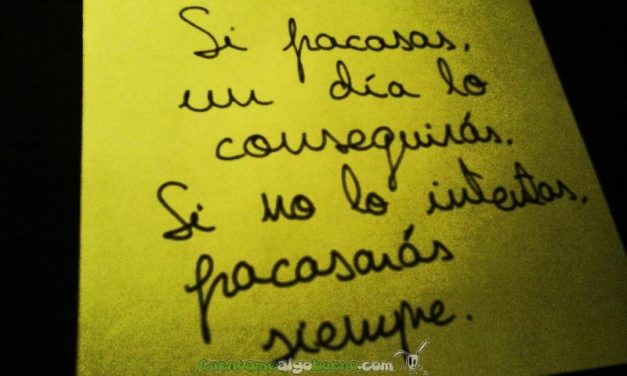 Si fracasas,
un día lo
conseguirás.
Si no lo intentas,
fracasarás
siempre.
cuentamealgobueno.com